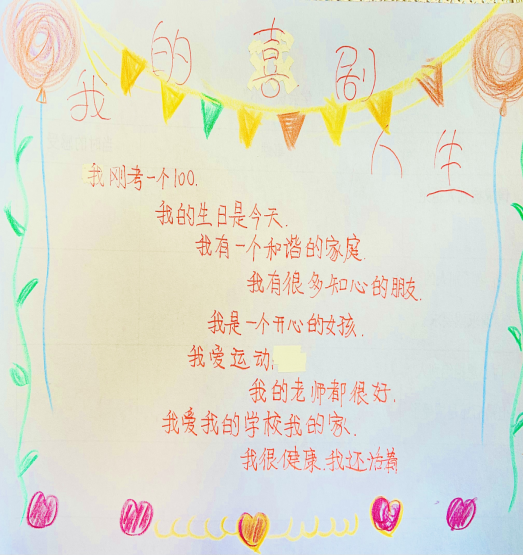 我的喜剧人生
我刚考一个100.
我的生日是今天.
我有一个和谐的家庭.
我有很多知心的朋友.
我是一个开心的女孩.
我爱运动
我的老师都很好.
我爱我的学校我的家.
我很健康.我还活着